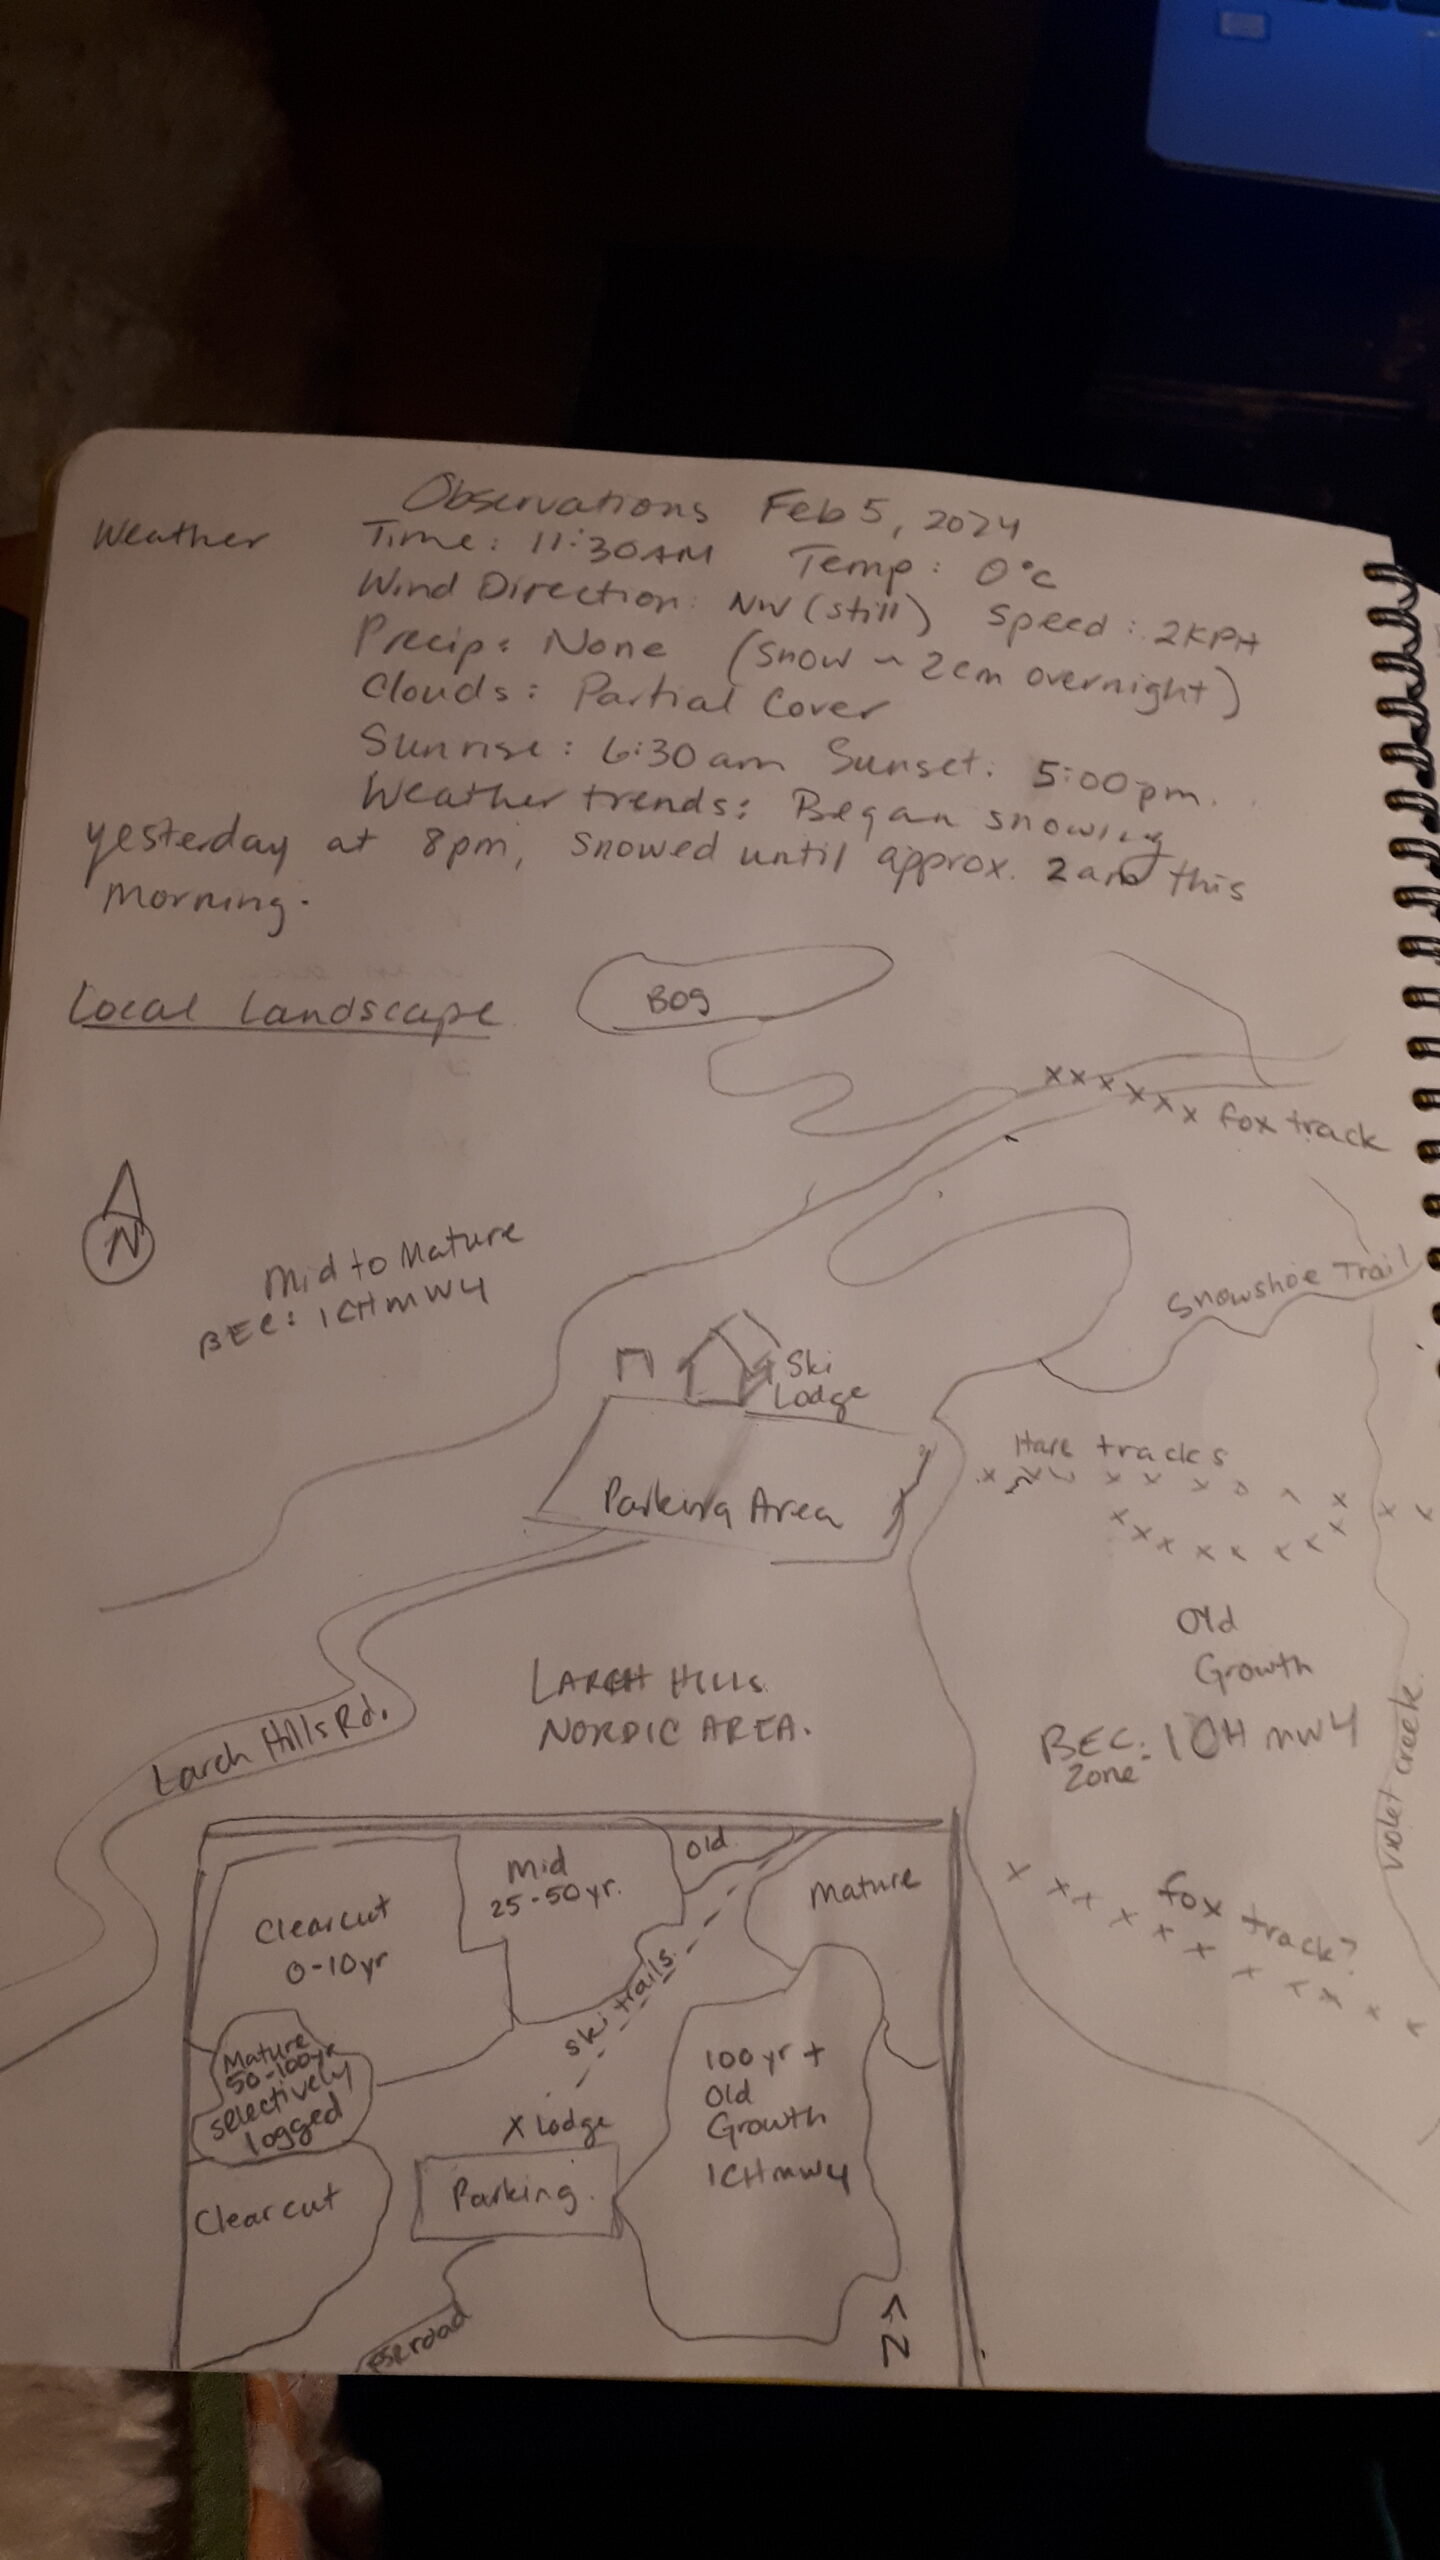 Observations Feb 5, 2024
Weather Time: 11:30AM Temp: 0°C
Wind Direction: NW (still) Speed: 2KPH
Precip: None (Snow ~ 2cm overnight)
Clouds: Partial Cover
Sunrise: 6:30am Sunset: 5:00pm.
Weather trends: Began snowing
yesterday at 8pm, snowed until approx. 2am this
morning.
Local Landscape
Bog
xxxxxx fox track
N
Mid to Mature
BEC: ICHmw4
Snowshoe Trail
Ski
Lodge
Hare tracks
Parking Area
Old
Growth
LARCH HILLS
NORDIC AREA.
BEC: ICH mw4
Zone
Larch Hills Rd.
Violet creek
fox track?
Clearcut
0-10yr
Mid
25-50yr.
Old
Mature
ski trails
Mature
50-100yr
selectively
logged
100yr +
Old
Growth
ICHmw4
X Lodge
Parking.
Clearcut
road
N